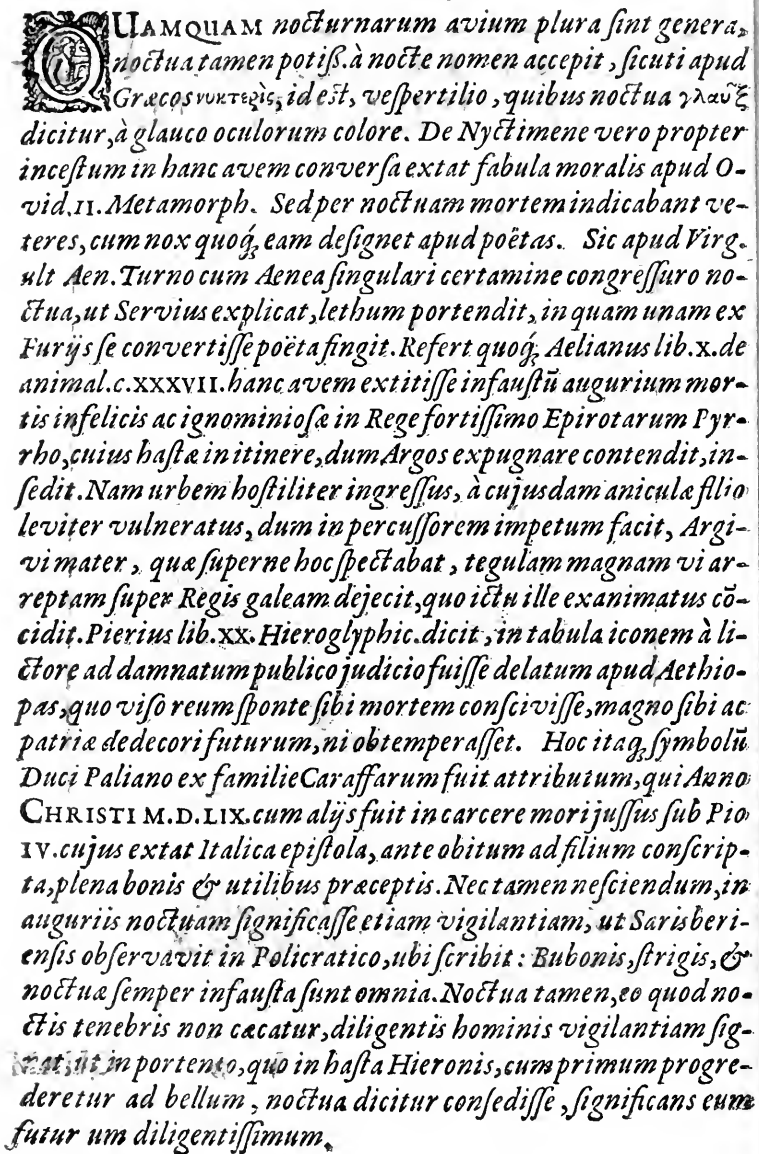 QUAMQUAM nocturnarum avium plura ſint genera,
noctua tamen potiß. à nocte nomen accepit, ſicuti apud
Græcos νυκτερὶς, id eſt, veſpertilio, quibus noctua γλαῦξ
dicitur, à glauco oculorum colore. De Nyctimene vero propter
inceſtum in hanc avem converſa extat fabula moralis apud O-
vid. II. Metamorph. Sed per noctuam mortem indicabant ve-
teres, cum nox quoq́; eam deſignet apud poëtas. Sic apud Virg.
ult Aen. Turno cum Aenea ſingulari certamine congreſſuro no-
ctua, ut Servius explicat, lethum portendit, in quam unam ex
Furijs ſe convertiſſe poëta fingit. Refert quoq́; Aelianus lib. X. de
animal. c. XXXVII. hanc avem extitiſſe infauſtū augurium mor-
tis infelicis ac ignominioſæ in Rege fortiſſimo Epirotarum Pyr-
rho, cuius haſtæ in itinere, dum Argos expugnare contendit, in-
ſedit. Nam urbem hoſtiliter ingreſſus, à cujusdam aniculæ filio
leviter vulneratus, dum in percuſſorem impetum facit, Argi-
vi mater, quæ ſuperne hoc ſpectabat, tegulam magnam vi ar-
reptam ſuper Regis galeam dejecit, quo ictu ille exanimatus cō-
cidit. Pierius lib. XX. Hieroglyphic. dicit, in tabula iconem à li-
ctore ad damnatum publico judicio fuiſſe delatum apud Aethio-
pas, quo viſo reum ſponte ſibi mortem conſciviſſe, magno ſibi ac
patriæ dedecori futurum, ni obtemperaſſet. Hoc itaq́; ſymbolū
Duci Paliano ex familie Caraffarum fuit attributum, qui Anno
CHRISTI M.D.LIX. cum alijs fuit in carcere mori juſſus ſub Pio
IV. cujus extat Italica epiſtola, ante obitum ad filium conſcrip-
ta, plena bonis & utilibus præceptis. Nec tamen neſciendum, in
auguriis noctuam ſignificaſſe etiam vigilantiam, ut Sarisberi-
enſis obſervavit in Policratico, ubi ſcribit: Bubonis, ſtrigis, &
noctuæ ſemper infauſta ſunt omnia. Noctua tamen, eo quod no-
ctis tenebris non cæcatur, diligentis hominis vigilantiam ſig-
nat, ut in portento, quo in haſta Hieronis, cum primum progre-
deretur ad bellum, noctua dicitur conſediſſe, ſignificans eum
futur um diligentiſſimum.